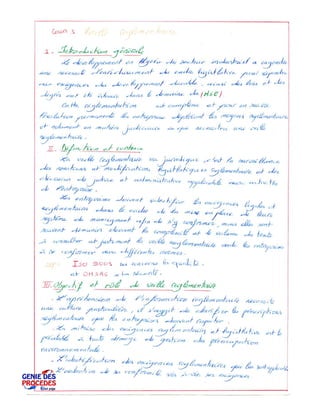 Cours : Veille réglementaire
1 - Introduction générale
Le développement en Algérie du secteur industriel a engendré
une nécessité d'enrichissement du cadre législatif pour répondre
aux exigences du développement durable, ainsi des lois et des
décrets ont été édictés dans le domaine de (HSE)
Cette réglementation est complexe et pour en
évolution permanente les entreprises les moyens réglementaires
et notamment en matière judiciaire une veille
réglementaire.
II. Définition et contenu
La veille réglementaire ou juridique, c'est la surveillance
des créations et modifications législatives réglementaires et des
décisions de justice et administratives applicables aux activités
de l'entreprise.
Les entreprises doivent identifier les exigences légales et
réglementaires dans le cadre de la mise en place de leurs
système de management afin de s'y conformer, mais elles sont
souvent démunies devant la complexité et le volume de texte
à consulter et justement la veille réglementaire aide les entreprises
à se conformer aux différentes normes.
ISO 9001 la qualité.
et OHSAS la sécurité.
III. Objectif et rôle de veille réglementaire
- L'appréhension de l'information réglementaire nécessite
une culture particulière, il s'agit de identifier les prescriptions
réglementaires que les entreprises doivent
- La maîtrise des exigences réglementaires et législatives est le
préalable à toute démarche de gestion des préoccupations
environnementales.
- L'identification des exigences réglementaires
- L'évaluation de sa conformité vis à vis ses exigences
GENIE DES
PROCEDES